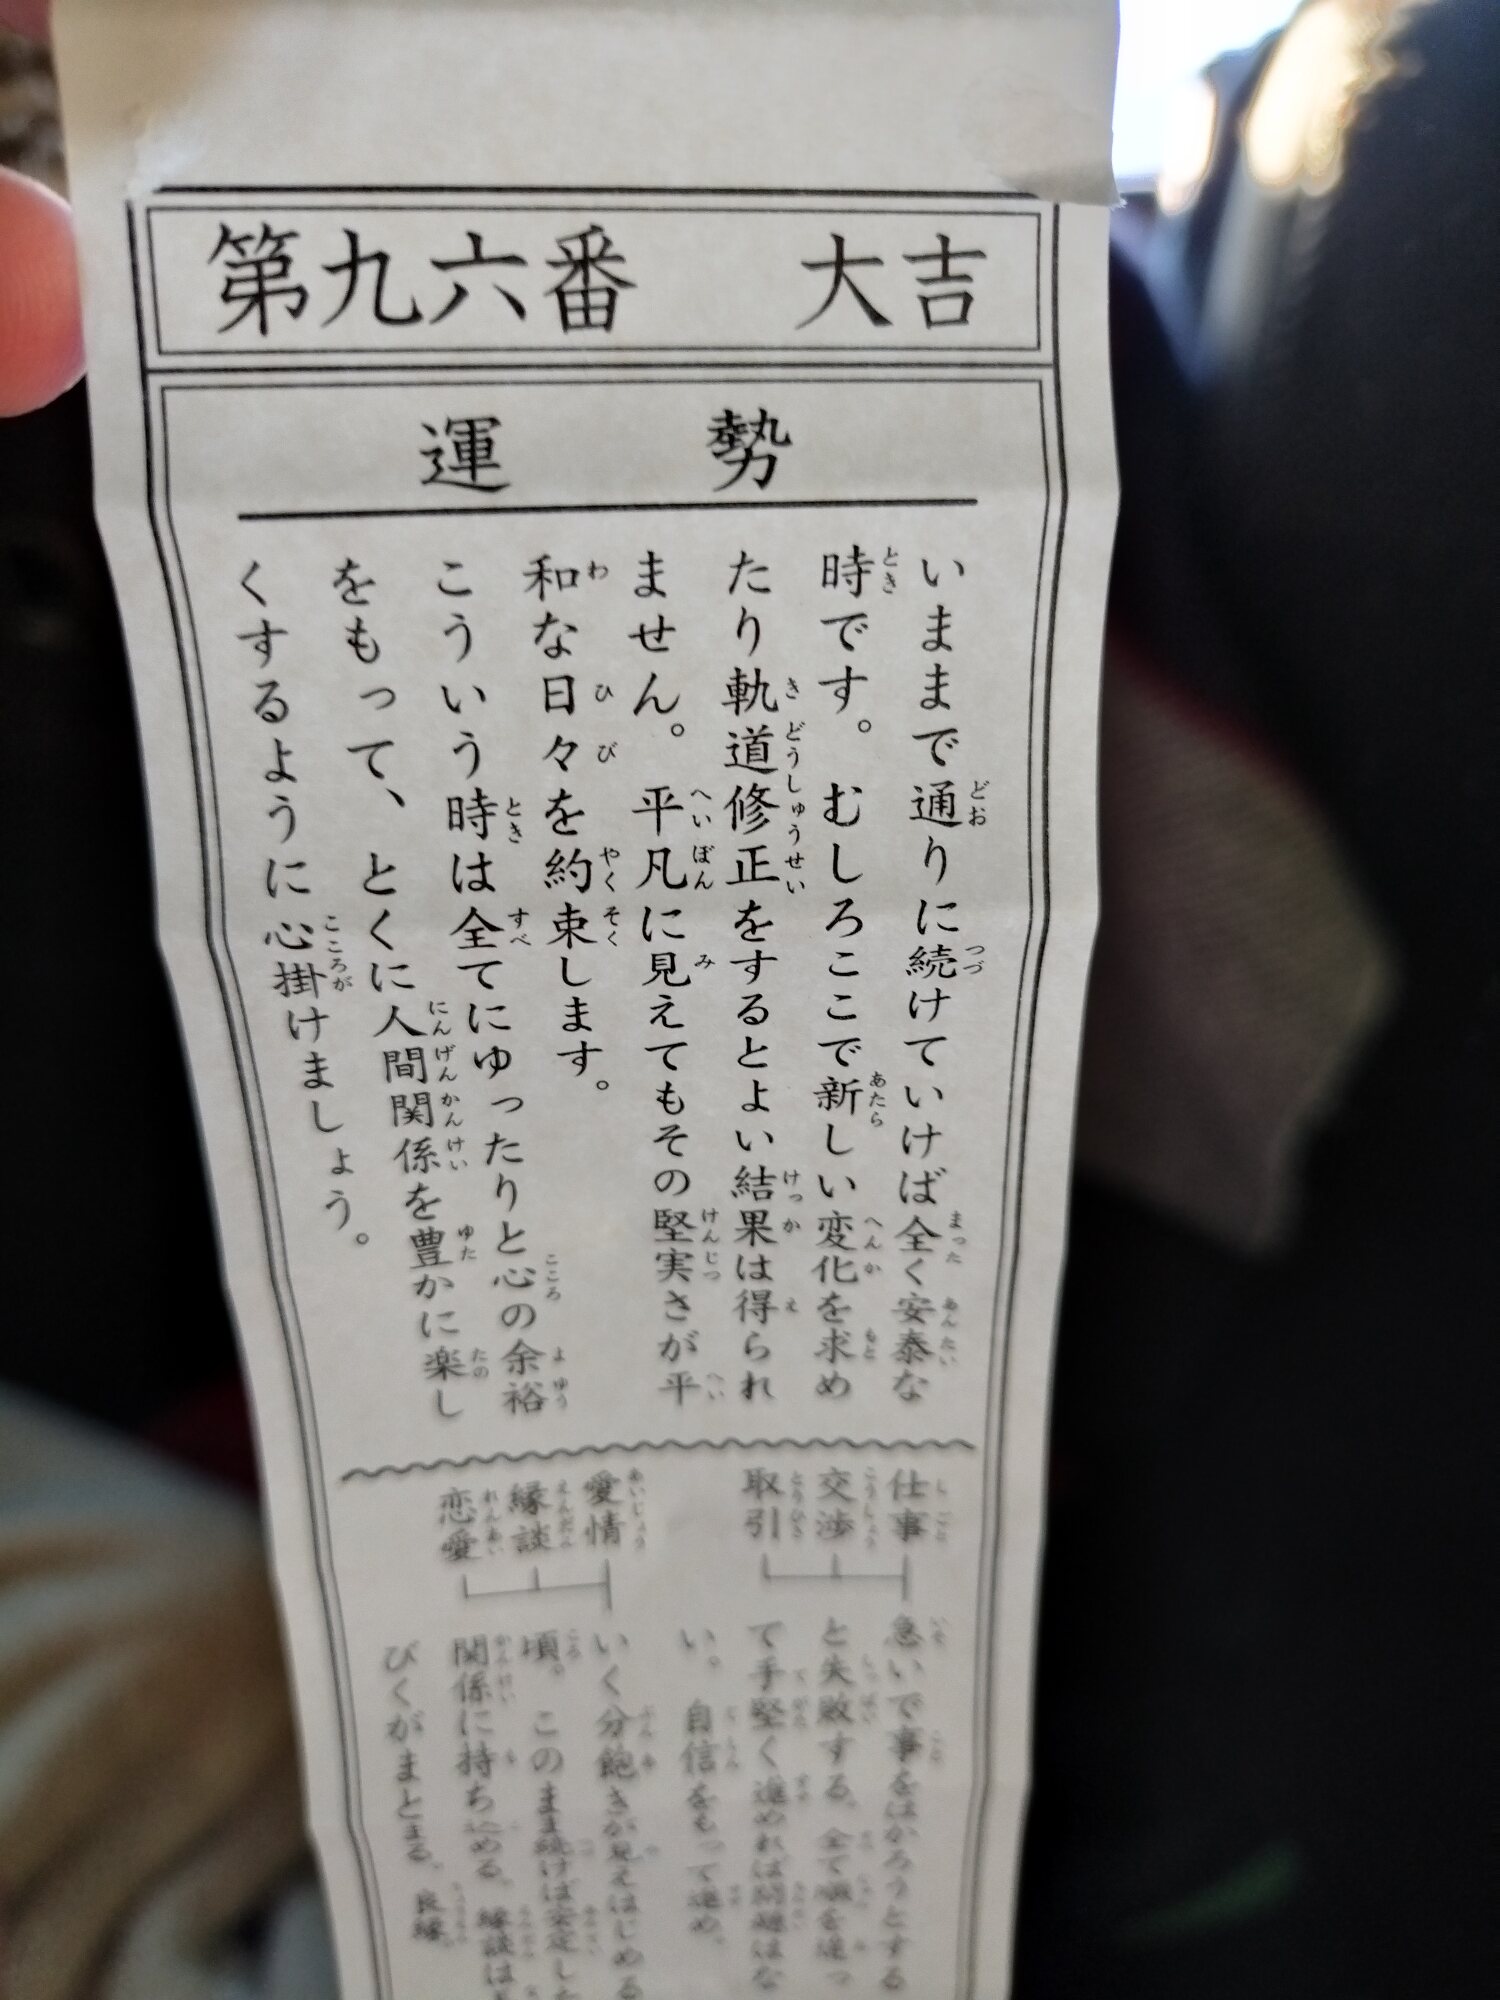 第九六番 大吉
運勢
いままで通りに続けていけば全く安泰な
時です。むしろここで新しい変化を求め
たり軌道修正をするとよい結果は得られ
ません。平凡に見えてもその堅実さが平
和な日々を約束します。
こういう時は全てにゆったりと心の余裕
をもって、とくに人間関係を豊かに楽し
くするように心掛けましょう。
仕事
交渉
取引
急いで事をはかろうとする
と失敗する。全て順を追っ
て手堅く進めれば問題はな
い。自信をもって進め。
愛情
縁談
恋愛
いく分飽きが見えはじめる
頃。このまま続けば安定した
関係に持ち込める。縁談は
びくがまとまる。良縁。